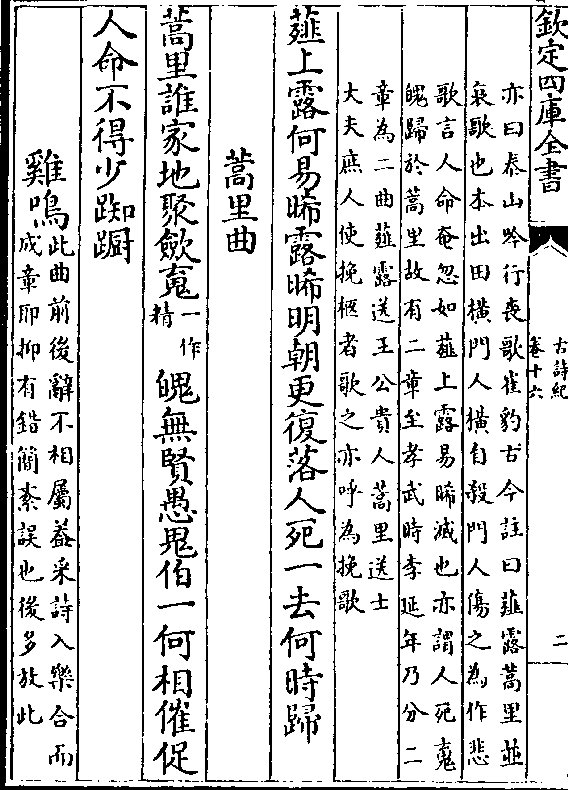 欽定四庫全書
古詩紀
卷十六
二
亦曰泰山吟行喪歌崔豹古今註曰薤露蒿里並
哀歌也本出田横門人横自殺門人傷之為作悲
歌言人命奄忽如薤上露易晞滅也亦謂人死䰟
魄歸於蒿里故有二章至孝武時李延年乃分二
章為二曲薤露送王公貴人蒿里送士
大夫庶人使挽柩者歌之亦呼為挽歌
薤上露何易晞露晞明朝更復落人死一去何時歸
蒿里曲
蒿里誰家地聚歛䰟一作精魄無賢愚鬼伯一何相催促
人命不得少踟蹰
雞鳴此曲前後辭不相屬葢采詩入樂合而
成章即抑有錯簡紊誤也後多放此